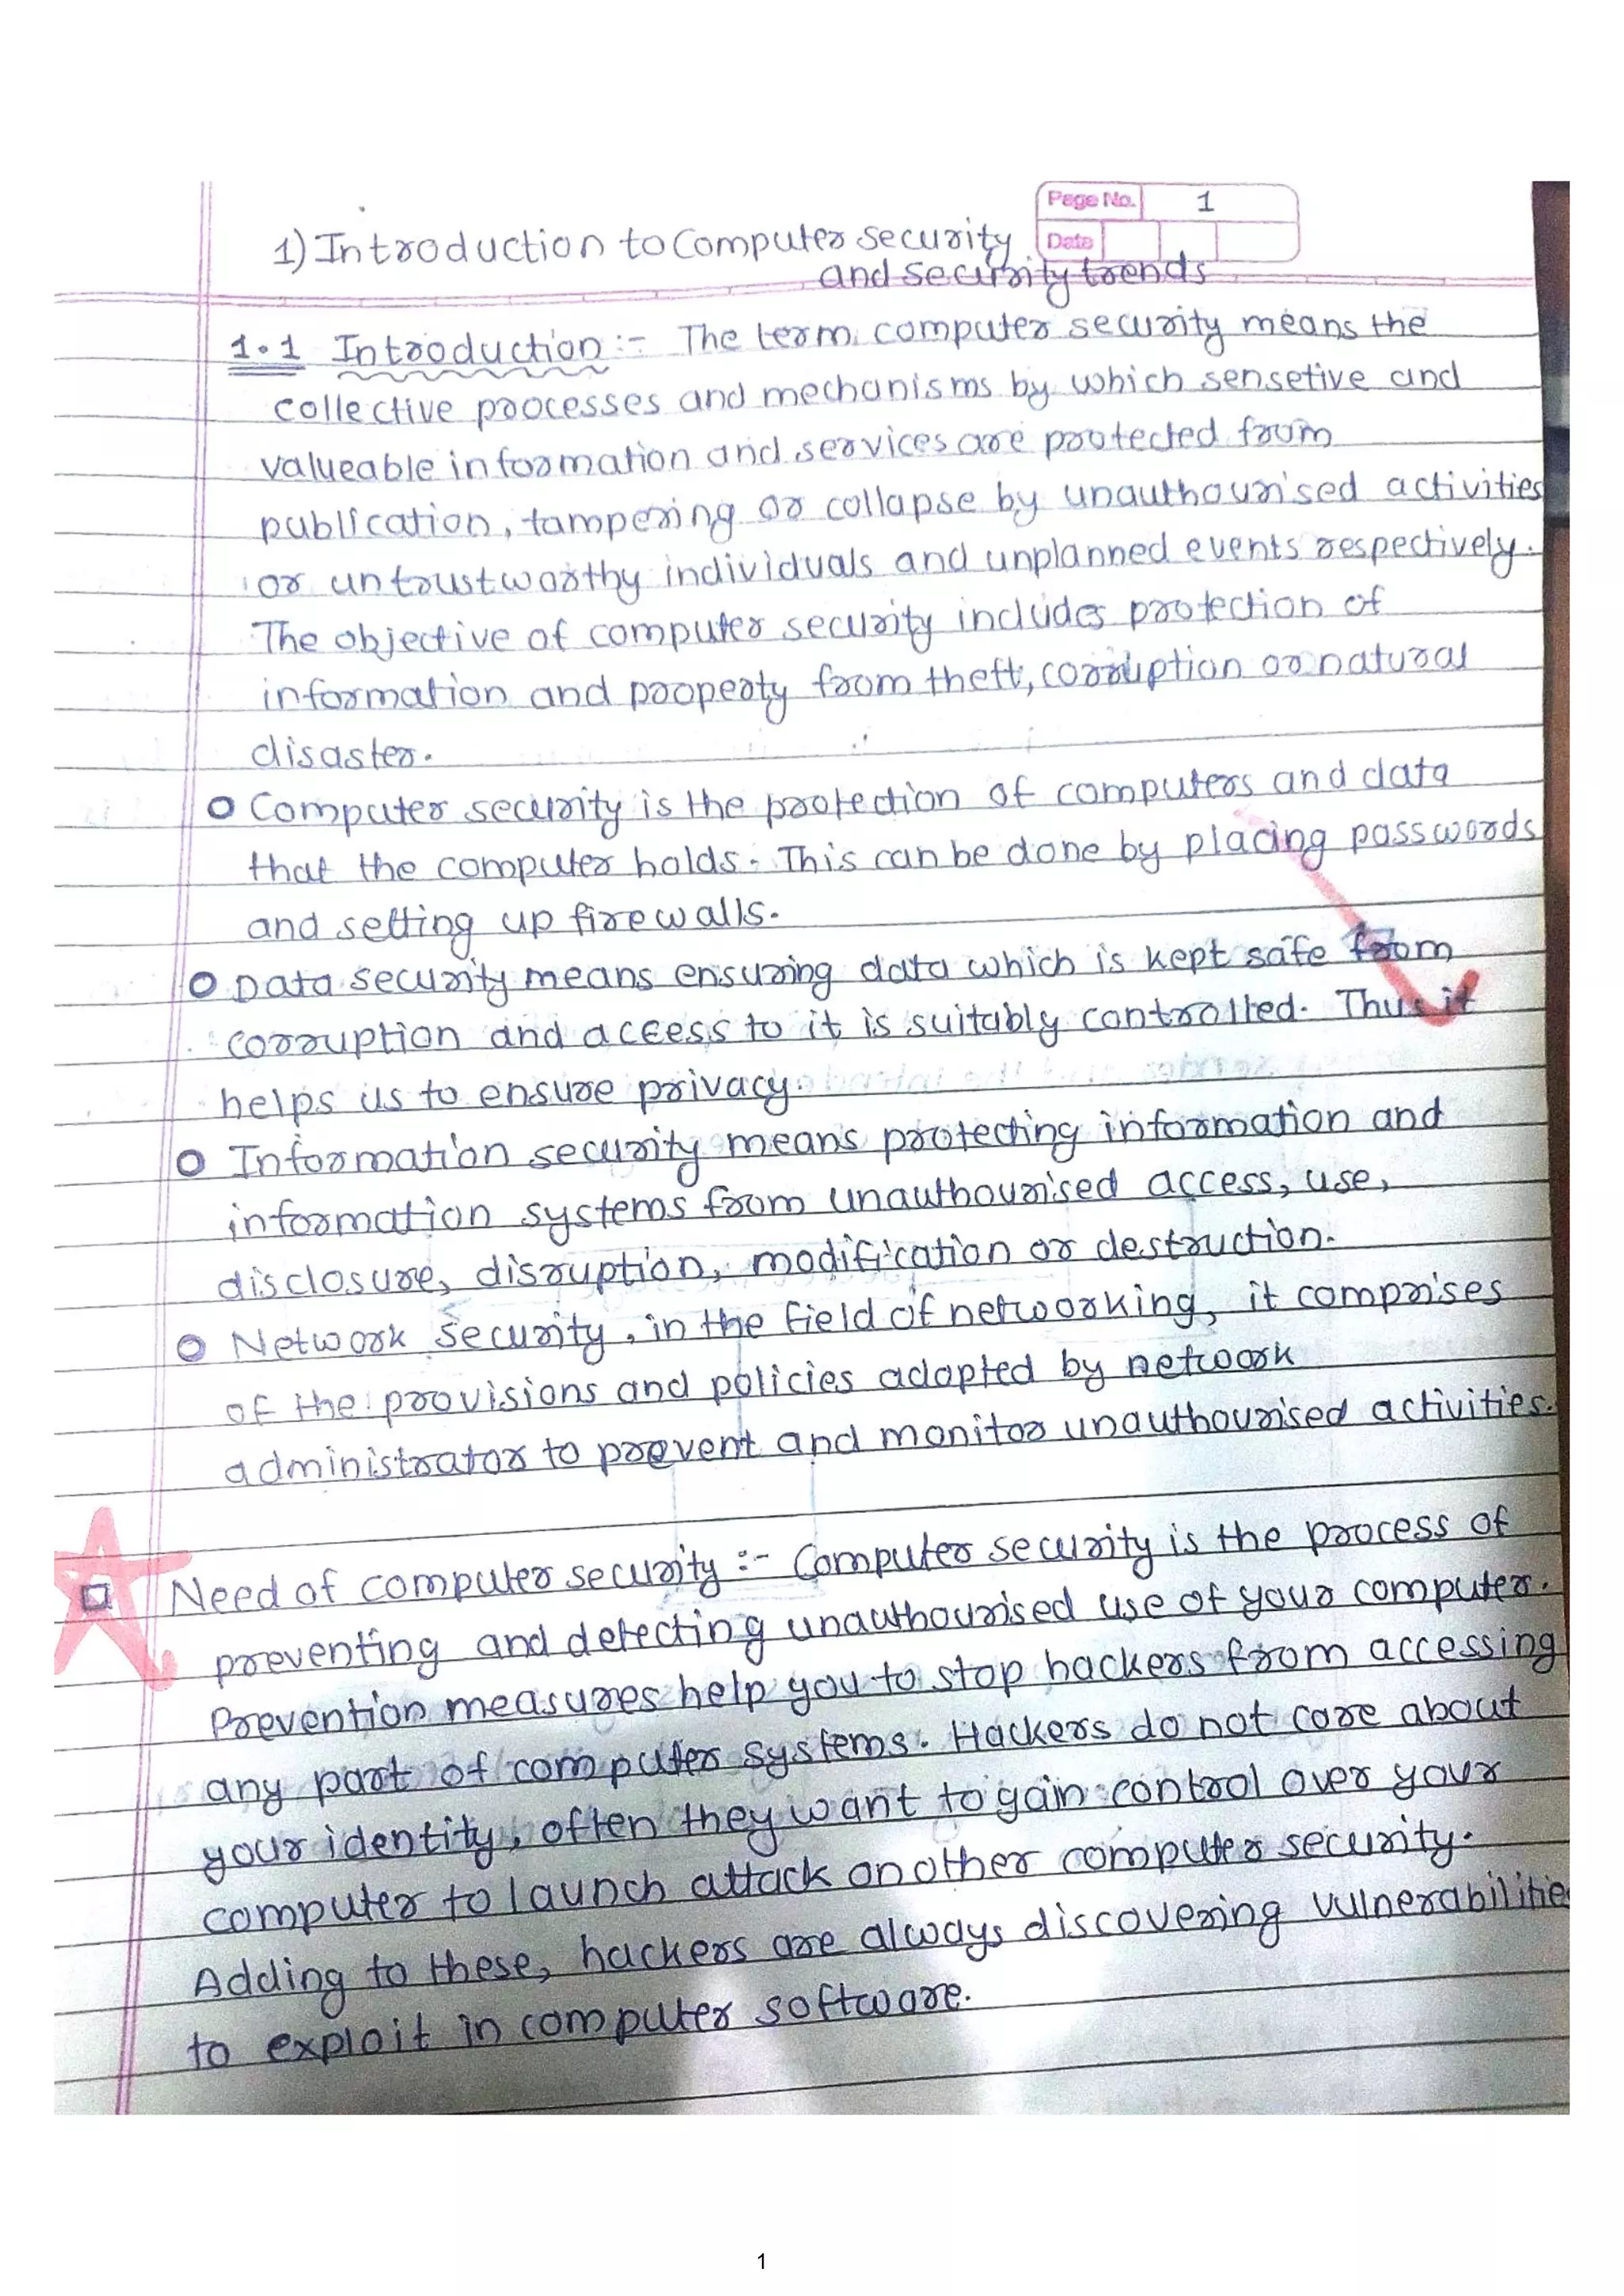 Page No. 1
Date
1) Introduction to Computer security
and security trends
1.1 Introduction :- The term computer security means the
collective processes and mechanisms by which sensetive and
valueable information and services are protected from
publication, tampering or collapse by unauthourised activities
or untrustworthy individuals and unplanned events respectively.
The objective of computer security includes protection of
information and property from theft, corruption or natural
disaster.
o Computer security is the protection of computers and data
that the computer holds. This can be done by placing passwords
and setting up firewalls.
o Data security means ensuring data which is kept safe from
corruption and access to it is suitably controlled. Thus it
helps us to ensure privacy.
o Information security means protecting information and
information systems from unauthourised access, use,
disclosure, disruption, modification or destruction.
o Network security, in the field of networking, it comprises
of the provisions and policies adopted by network
administrator to prevent and monitor unauthourised activities.
Need of computer security :- Computer security is the process of
preventing and detecting unauthourised use of your computer.
Prevention measures help you to stop hackers from accessing
any part of computer systems. Hackers do not care about
your identity, often they want to gain control over your
computer to launch attack on other computer security.
Adding to these, hackers are always discovering vulnerabilities
to exploit in computer software.
1